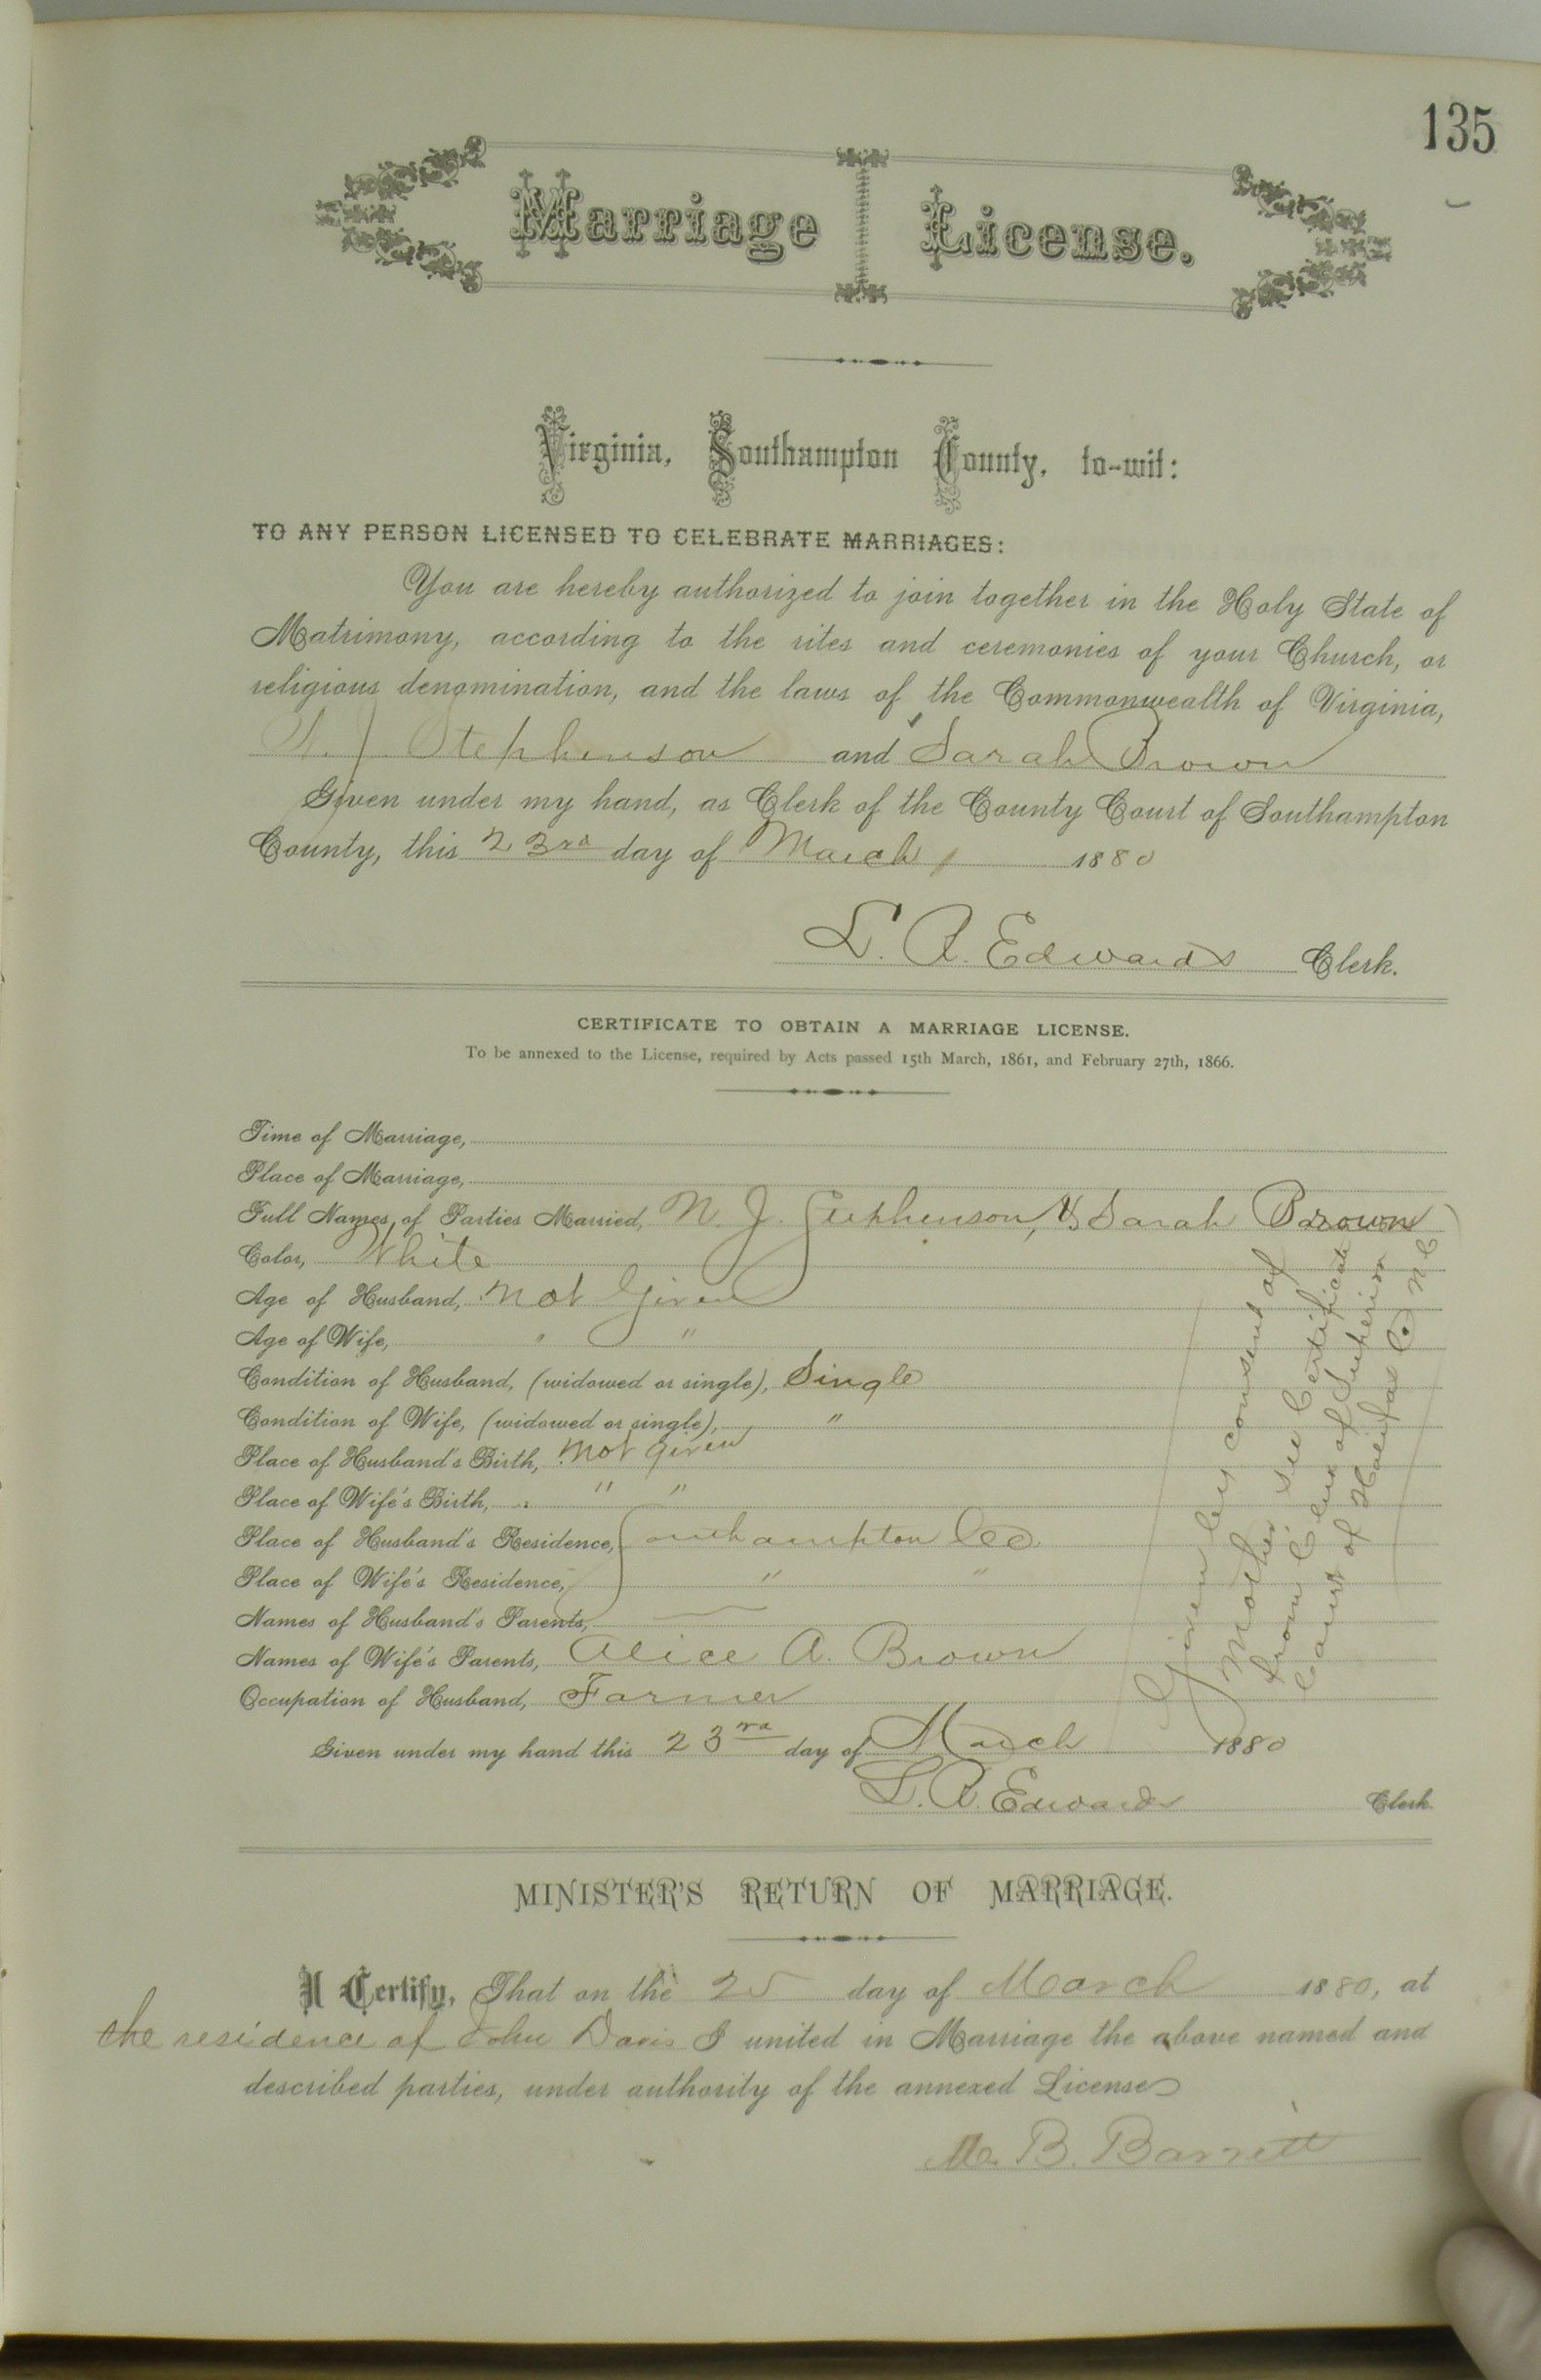 135
Marriage License.
Virginia, Southampton County, to-wit:
TO ANY PERSON LICENSED TO CELEBRATE MARRIAGES:
You are hereby authorized to join together in the Holy State of
Matrimony, according to the rites and ceremonies of your Church, or
religious denomination, and the laws of the Commonwealth of Virginia,
N. J. Stephenson and Sarah Brown
Given under my hand, as Clerk of the County Court of Southampton
County, this 23rd day of March 1880
L. R. Edwards Clerk.
CERTIFICATE TO OBTAIN A MARRIAGE LICENSE.
To be annexed to the License, required by Acts passed 15th March, 1861, and February 27th, 1866.
Time of Marriage,
Place of Marriage,
Full Names of Parties Married, N. J. Stephenson, & Sarah Brown
Color, White
Age of Husband, Not Given
Age of Wife, " "
Condition of Husband, (widowed or single), Single
Condition of Wife, (widowed or single), "
Place of Husband's Birth, Not given
Place of Wife's Birth, " "
Place of Husband's Residence, Southampton Co.
Place of Wife's Residence, " "
Names of Husband's Parents,
Names of Wife's Parents, Alice A. Brown
Occupation of Husband, Farmer
Given under my hand this 23rd day of March 1880
L. R. Edwards Clerk.
Given by consent of
Mother see Certificate
from Clerk of Superior
Court of Halifax Co N C
MINISTER'S RETURN OF MARRIAGE.
I Certify, That on the 25 day of March 1880, at
the residence of John Davis I united in Marriage the above named and
described parties, under authority of the annexed License
B. Barrett